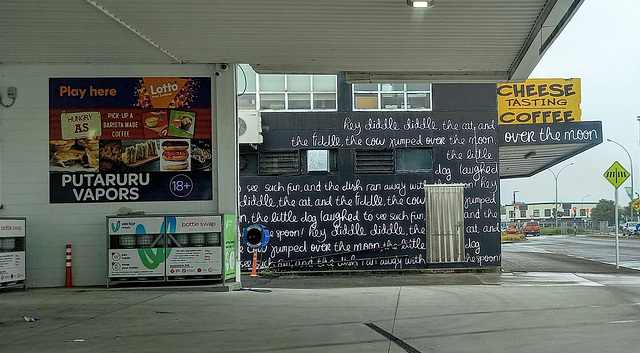 Play here
Lotto
HUNGRY
AS
PICK-UP A
BARISTA MADE
COFFEE
PUTARURU
VAPORS
18+
bottle swap
vector
bottle swap
CHEESE
TASTING
COFFEE
over the moon
hey diddle diddle, the cat, and
the fiddle, the cow jumped over the moon,
the little
dog laughed
to see such fun, and the dish ran away with the spoon! hey
diddle, the cat, and the fiddle, the cow jumped
the moon, the little dog laughed to see such fun, and the
spoon! hey diddle diddle, the cat, and
cow jumped over the moon, the little dog
see such fun, and the dish ran away with the spoon